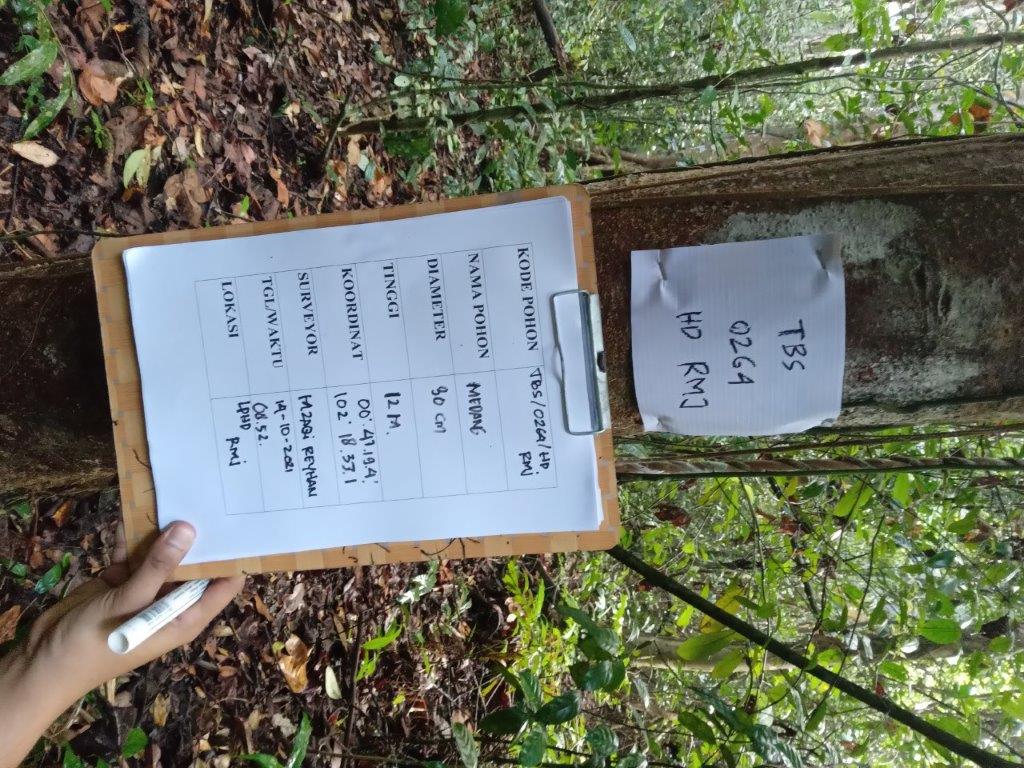 TBS
0264
HD RMJ
KODE POHON TBS/0264/HD.
RMJ
NAMA POHON MEDANG
DIAMETER 90 cm
TINGGI 12 M.
KOORDINAT 00'.47.19.4'
102' 18.33.1
SURVEYOR M.ZAQI REYHAN
TGL/WAKTU 19-10-2021
08.52.
LOKASI LPHD
RMJ